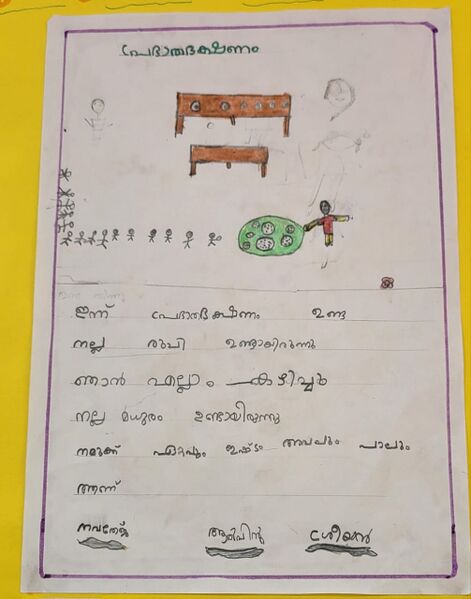 പ്രഭാതഭക്ഷണം
ഇന്ന് പ്രഭാതഭക്ഷണം ഉണ്ടു
നല്ല രുപി ഉണ്ടായിരുന്നു
ഞാൻ എല്ലാം കഴിച്ചു
നല്ല മധുരം ഉണ്ടായിരുന്നു
നമുക്ക് ഏറ്റവും ഇഷ്ടം അവലും പാലും
ആണ്
നവതേജ് ശ്രീയാൻ